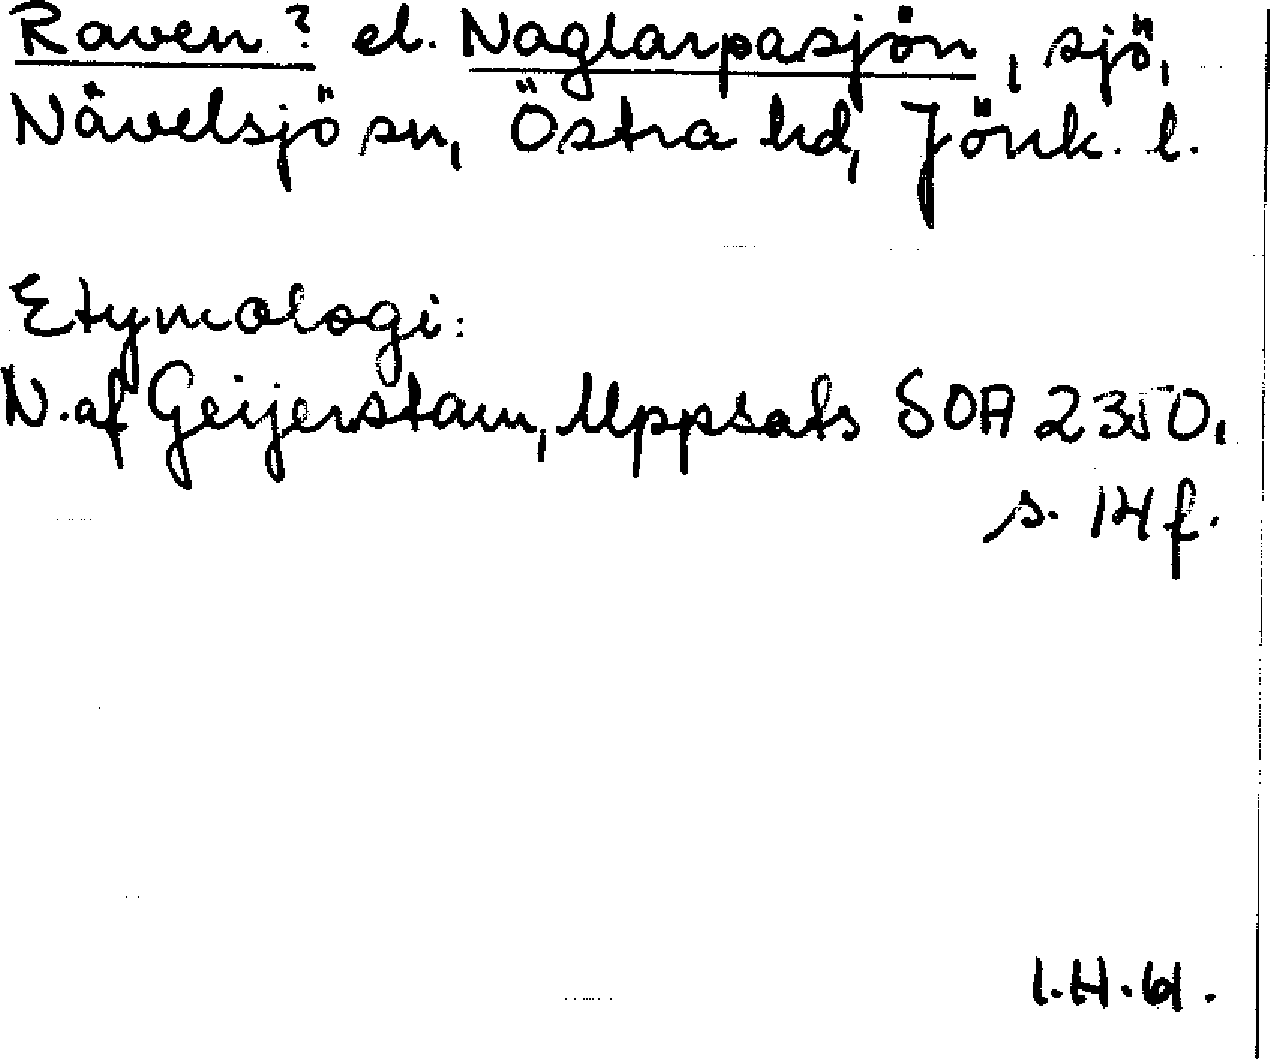 Raven? el. Naglarpasjön, sjö,
Nävelsjö sn, Östra hd, Jönk. l.
Etymologi:
N. af Geijerstam, Uppsats SOA 2350,
s. 14 f.
I.H.61.